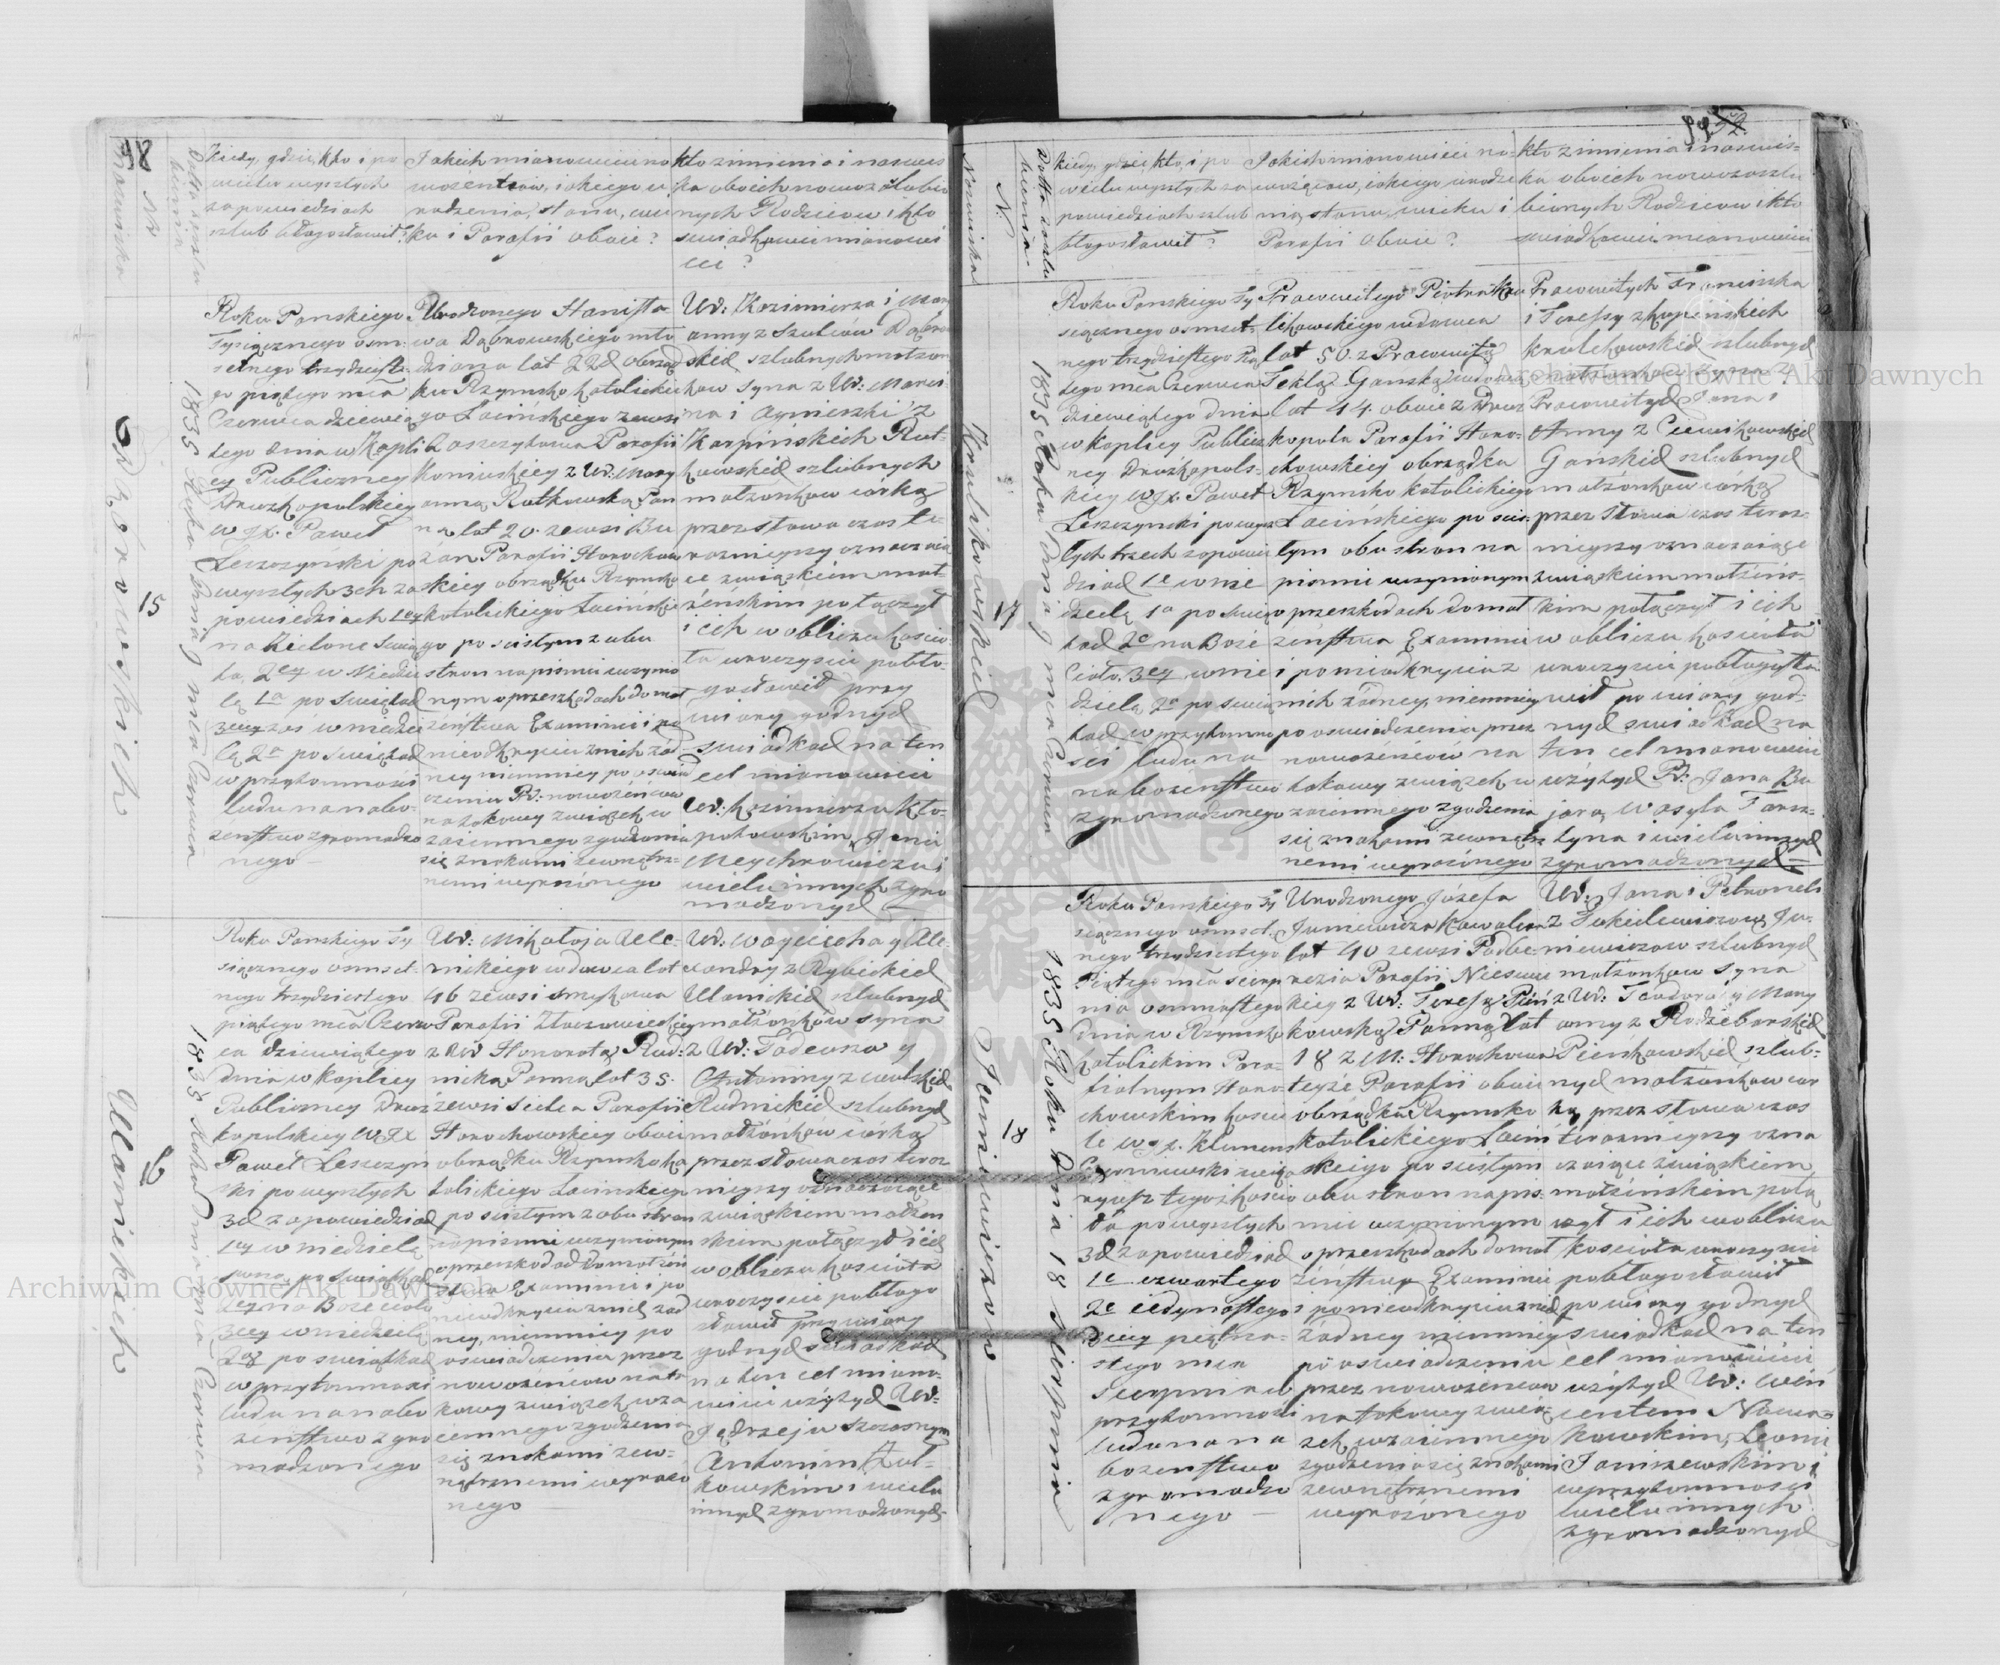 98
Nazwiska
N
Data oszlu
bienia
Kiedy, gdzie, kto i po
wielu wyszłych
zapowiedziach
szlub błogosławił?
Jakich mianowicie no
wożentców, iakiego u
rodzenia, stanu, wie
ku i Parafii oboie?
kto z imienia i nazwis
ka oboich nowozaślubio
nych Rodziców i kto
swiadkowie mianowi
cie?
Dąbrowskich
15
1835 Roku Dnia 9 mca Czerwca
Roku Panskiego
Tysiącznego ośm-
setnego trzydzieste
go piątego mca
Czerwca dziewią
tego dnia w Kapli
cy Publiczney
Druzkopolskiey
W JX. Paweł
Leszczynski po
wyszłych 3ch za
powiedziach 1ey
na Zielone Swią
tka, 2ey w Niedzie
lę 1a po Swiątkach
3ciey zas w niedzie
lę 2a po Swiątkach
w przytomnosci
ludu na nabo-
żeństwo zgromadzo
nego —
Urodzonego Stanisła
wa Dąbrowskiego mło
dziana lat 22 obrząd
ku Rzymsko Katolickie
go Łacinskiego zewsi
Zaszczytowa Parafii
Koniuskiey z Ur: Mary
anną Rutkowską Pan
ną lat 20. zewsi Bu
żan Parafii Horochow
skiey obrządku Rzymsko
katolickiego Łacinskie
go po scisłym z obu
stron na pismie uczynio
nym o przeszkodach do mał
żeństwa Examinie i po
nieodkryciu z nich żad
ney niemniey po oświad
czeniu Pr: nowożeńców
na takowy związek w
zaiemnego zgodzenia
się znakami zewnętrz-
nemi wyrażonego
Ur: Kazimierza i Mary
anny z Szulców Dąbrow
skich szlubnych małżon
ków syna z Ur: Marci
na i Agnieszki z
Karpińskich Rut-
kowskich szlubnych
małżonków córką
przez słowa czas te-
raznieyszy oznaczaią
ce związkiem mał-
żeńskim połączył
i ich w obliczu kościo
ła uroczyscie pobło-
gosławił przy
wiary godnych
swiadkach na ten
cel mianowicie
Ur: Kazimierzu Kło-
potowskim, Janie
Meychrowiczu i
wielu innych zgro
madzonych
Ulanickich
16
1835 Roku Dnia 9 mca Czerwca
Roku Panskiego Ty
siącznego ośmset-
nego trzydziestego
piątego mca Czerw
ca dziewiątego
dnia w kaplicy
Publiczney Druż
kopolskiey W JX
Paweł Leszczyn
ski po wyszłych
3ch zapowiedziach
1ey w niedzielę
po Swiątkach
2ey na Boże Ciało
3ciey w niedzielę
2ą po swiątkach
w przytomnosci
ludu na nabo
żeństwo zgro
madzonego
Ur: Mikołaja Ula-
nickiego wdowca lat
46 zewsi Smykowa
Parafii Złoczowieckiey
z Ur Honoratą Rud:
nicką Panną lat 35.
zewsi Sielca Parafii
Horochowskiey oboie
obrządku Rzymsko ka
tolickiego Łacinskiego
po scisłym z obu stron
na pismie uczynionym
o przeszkodach do małżeń
stwa Examinie i po
nieodkryciu z nich żad
ney, niemniey po
oświadczeniu przez
nowożeńców na ta
kowy związek wza
iemnego zgodzenia
się znakami zew-
nętrznemi wyrażo
nego —
Ur: Woyciecha y Ale
xandry z Rybickich
Ulanickich szlubnych
małżonków syna
z Ur: Tadeusza y
Antoniny z Wolskich
Rudnickich szlubnych
małżonków córką
przez słowa czas teraz
nieyszy oznaczaiące
związkiem małżeń
skim połączył i ich
w obliczu kościoła
uroczyscie pobłogo
sławił przy wiary
godnych swiadkach
na ten cel miano-
wicie użytych Ur:
Jędrzeju Szczesnym
Antonim Rut-
kowskim i wielu
innych zgromadzonych
Nazwiska
N.
Datta oszlu
bienia.
kiedy, gdzie, kto, i po
wielu wyszłych za
powiedziach szlub
błogosławił?
Jakich mianowicie no-
wożęców, iakiego urodze
nia, stanu, wieku i
Parafii oboie?
kto z imienia i nazwis-
ka oboich nowozaszlu
bionych Rodziców i kto
swiadkowie mianowicie
Krulikowskich
17
1835 Roku Dnia 9 mca Czerwca
Roku Panskiego Ty
siącznego osmset-
nego trzydziestego Pią
tego mca Czerwca
dziewiątego dnia
w kaplicy Publicz
ney Drużkopols-
kiey W JX. Paweł
Leszczynski po wysz
łych trzech zapowie
dziach 1e w nie
dzielę 1a po Swią
tkach 2e na Boże
Ciało. 3ey w nie
dzielę 2a po Swią
tkach w przytomno
sci ludu na
nabożeństwo
zgromadzonego
Pracowitego Piotra Kru
likowskiego wdowca
lat 50. z Pracowitą
Teklą Gańską wdową
lat 44. oboie z Druz
kopola Parafii Horo-
chowskiey obrządku
Rzymsko katolickiego
Łacińskiego po scis-
łym obu stron na
pismie uczynionym
o przeszkodach do mał
żeństwa Examinie
i po nieodkryciu z
nich żadney, niemniey
po oswiadczeniu przez
nowożeńców na
takowy związek w
zaiemnego zgodzenia
się znakami zewnętrz
nemi wyrażonego
Pracowitych Franciszka
i Teressy z Kopinskich
Krulikowskich szlubnych
małżonków syna z
Pracowitych Jana i
Anny z Ciemikowskich
Gańskich szlubnych
małżonków córką
przez słowa czas teraz-
nieyszy oznaczaiące
związkiem małżeńs-
kim połączył i ich
w obliczu kościoła
uroczyscie pobłogosła
wił po wiary god-
nych swiadkach na
ten cel mianowicie
użytych Pr: Jana Bo
jara, Wasyla Tarsz-
tyna i wielu innych
zgromadzonych —
Juniewiczow
18
1835 Roku Dnia 18 Sierpnia
Roku Panskiego Ty
siącznego osmset.
nego trzydziestego
Piątego mca Sierp
nia osmnastego
dnia w Rzymsko
katolickim Para-
fialnym Horo-
chowskim kościo
le W JX. Klemens
tegoż kościo
ła po wyszłych
3ch zapowiedziach
1e czwartego
2e iedynastego
3ciey piętna-
stego mca
Sierpnia w
przytomnosci
ludu na na
bożeństwo
zgromadzo
nego —
Urodzonego Józefa
Juniewicza Kawalera
lat 40 zewsi Podbe-
rezia Parafii Nieswie
kiey z Ur: Teressą Pień
kowską Panną lat
18 z M: Horochowa
teyże Parafii oboie
obrządku Rzymsko
katolickiego Łaciń
skiego po scisłym
obu stron na pis-
mie uczynionym
o przeszkodach do mał
żeństwa Examinie
i po nieodkryciu z nich
żadney niemniey
po oswiadczeniu
przez nowożeńców
na takowy zwią-
zek wzaiemnego
zgodzenia się znakami
zewnętrznemi
wyrażonego
Ur: Jana i Petroneli
z Jakielewiczow Ju-
niewiczow szlubnych
małżonków syna
z Ur: Teodora y Mary
anny z Radzeborskich
Pieńkowskich szlub-
nych małżonków cór
ką przez słowa czas
teraznieyszy ozna
czaiące związkiem
małżeńskim połą
czył i ich w obliczu
kościoła uroczyscie
pobłogosławił
po wiary godnych
swiadkach na ten
cel mianowicie
użytych Ur: Win
centem Nowa-
kowskim, Leonie
Janiszewskim i
w przytomnosci
wielu innych
zgromadzonych
Archiwum Główne Akt Dawnych
Archiwum Główne Akt Dawnych